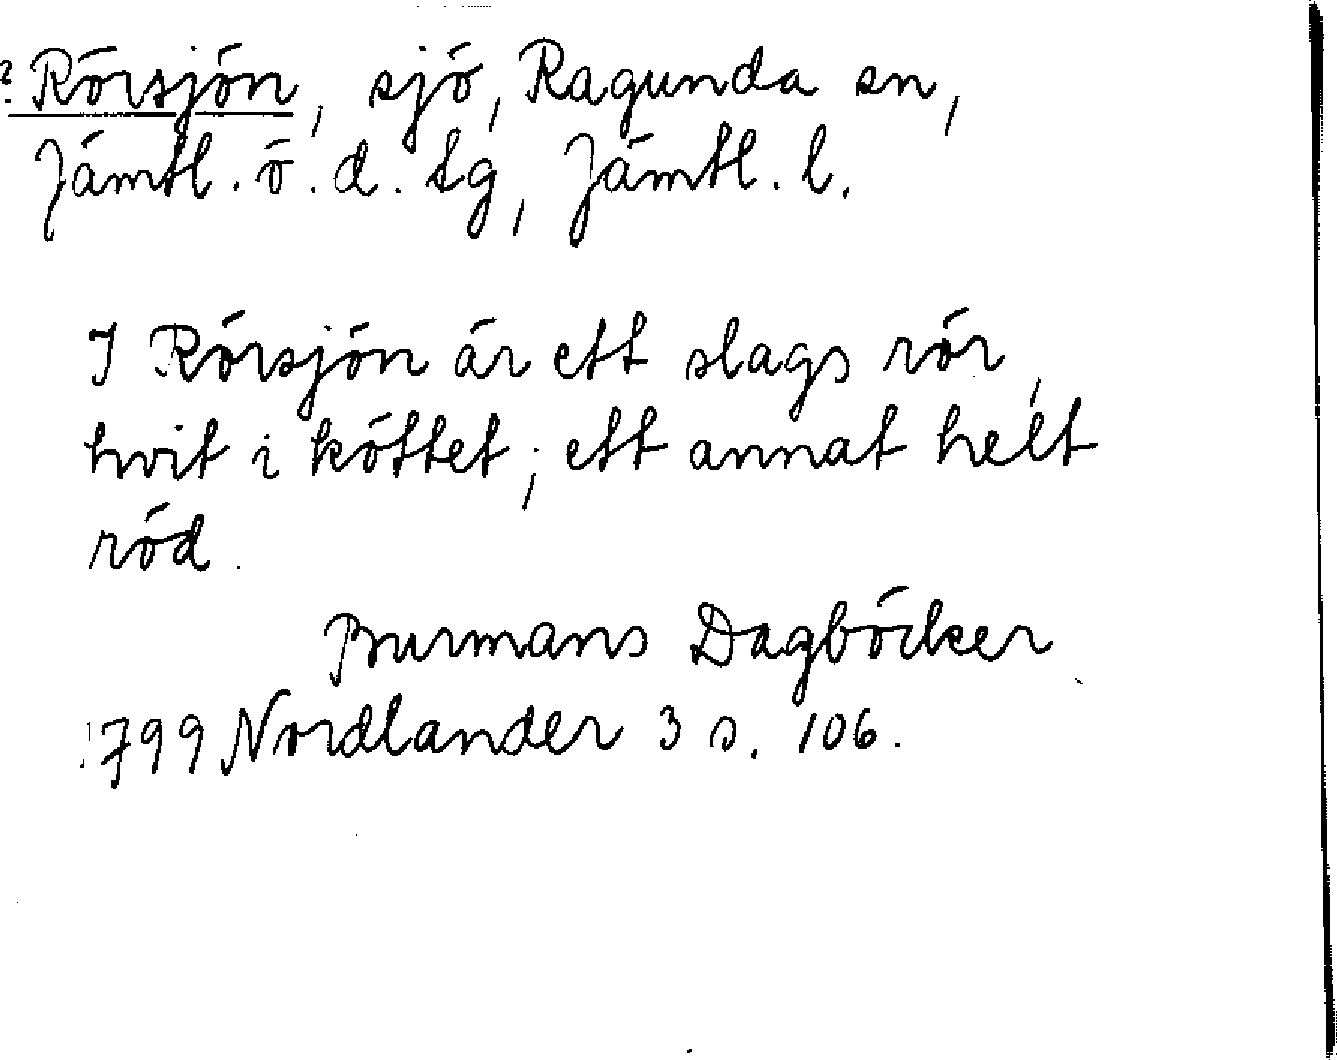 ? Rörsjön, sjö, Ragunda sn,
Jämtl. ö. d. tg, Jämtl. l.
I Rörsjön är ett slags rör,
hvit i köttet; ett annat helt
röd.
Burmans Dagböcker
1799 Nordlander 3 s. 106.